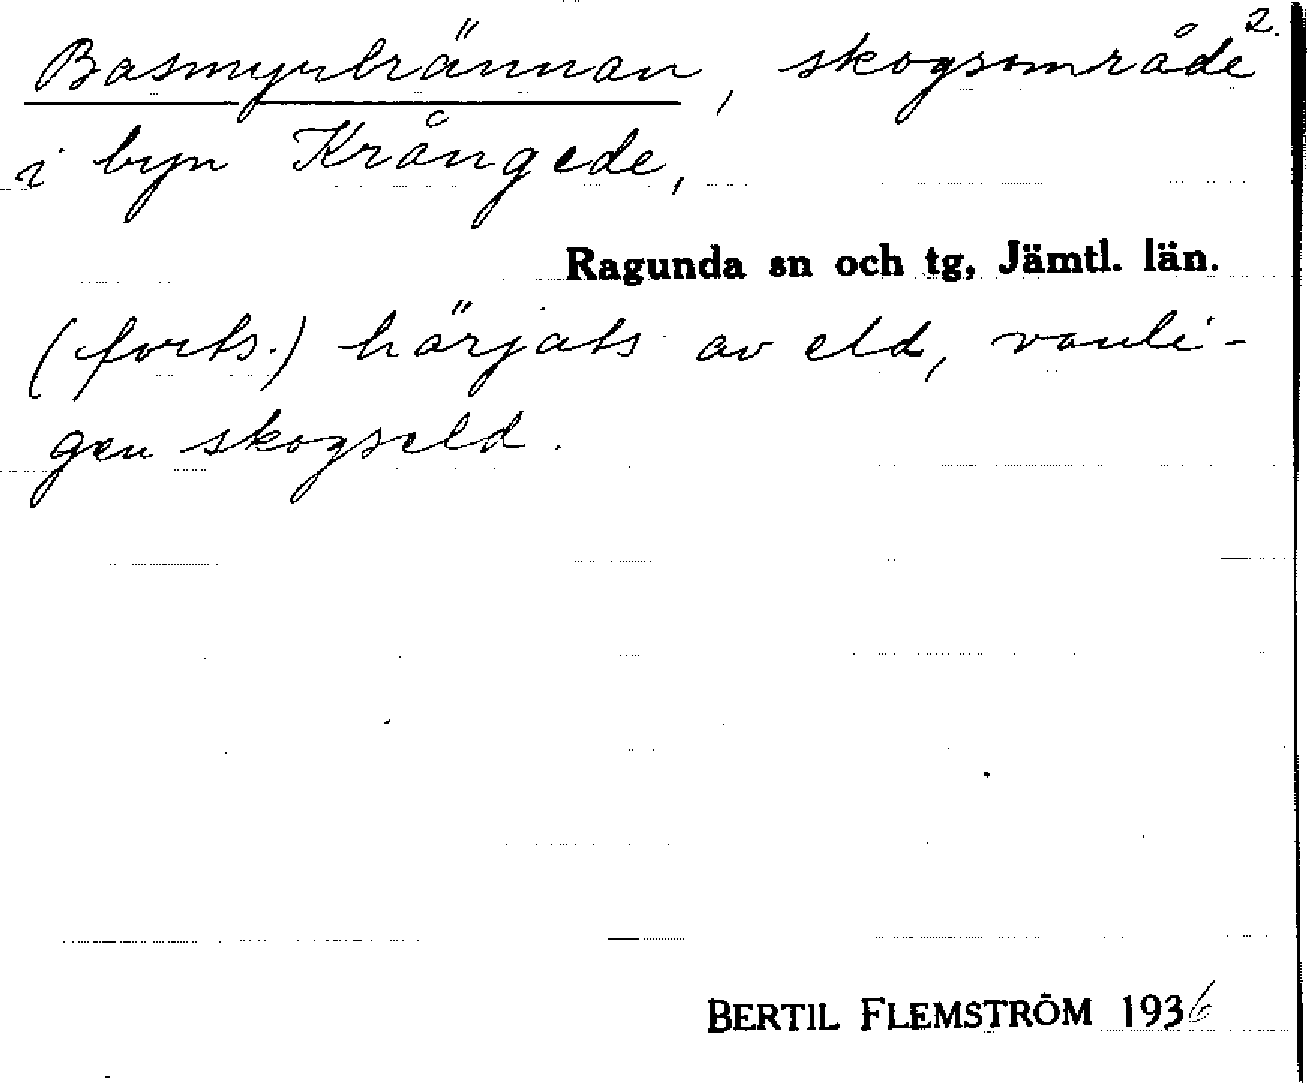 2.
Basmyrbrännan, skogsområde
i byn Krångede,
Ragunda sn och tg, Jämtl. län.
(forts.) härjats av eld, vanli-
gen skogseld.
BERTIL FLEMSTRÖM 1936